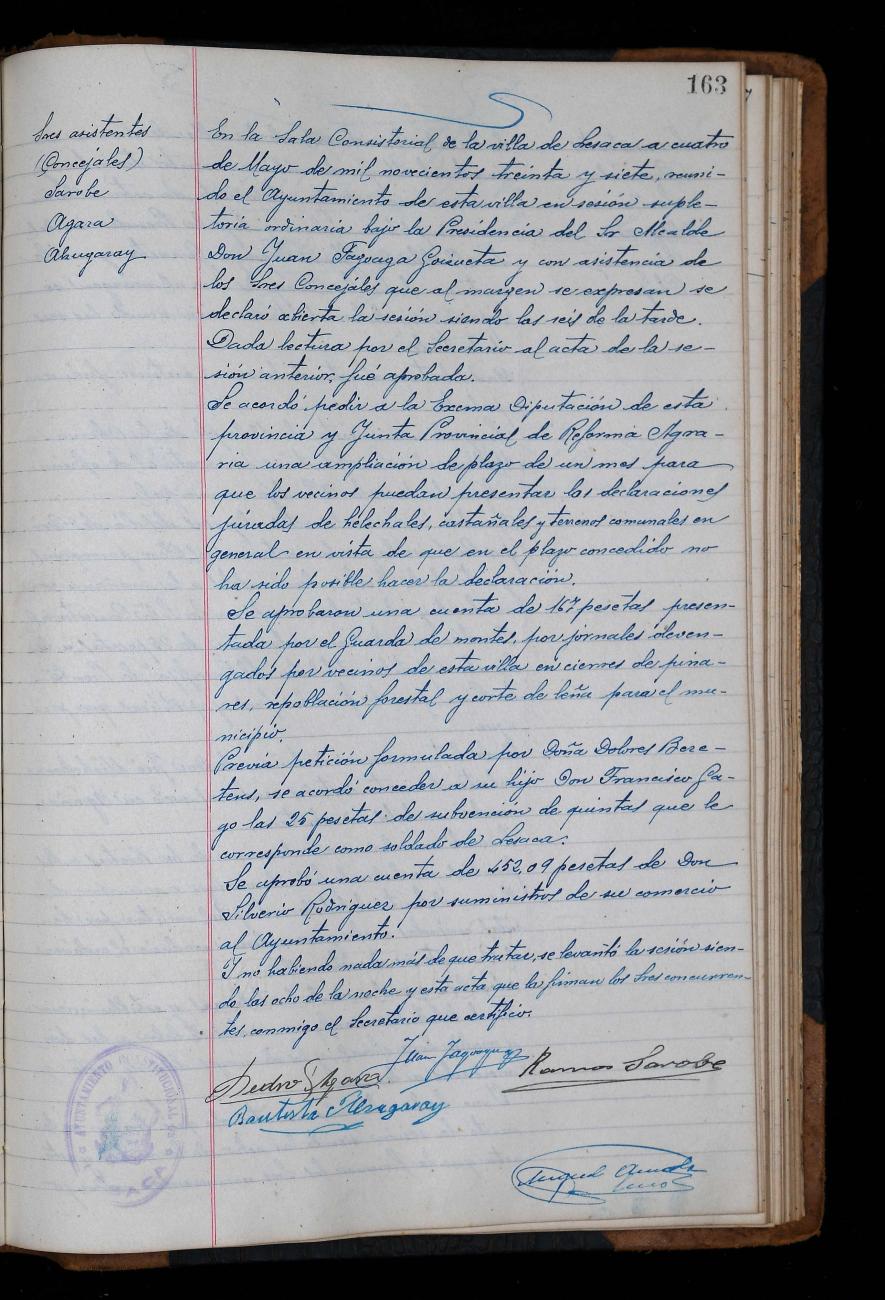 163
Sres asistentes
(Concejales)
Sarobe
Agara
Alzugaray
En la Sala Consistorial de la villa de Lesaca a cuatro
de Mayo de mil novecientos treinta y siete, reuni-
do el Ayuntamiento de esta villa en sesión suple-
toria ordinaria bajo la Presidencia del Sr Alcalde
Don Juan Fagoaga Goizueta y con asistencia de
los Sres Concejales que al margen se expresan se
declaró abierta la sesión siendo las seis de la tarde.
Dada lectura por el Secretario al acta de la se-
sión anterior, fué aprobada.
Se acordó pedir a la Excma Diputación de esta
provincia y Junta Provincial de Reforma Agra-
ria una ampliación de plazo de un mes para
que los vecinos puedan presentar las declaraciones
juradas de helechales, castañales y terrenos comunales en
general en vista de que en el plazo concedido no
ha sido posible hacer la declaración.
Se aprobaron una cuenta de 167 pesetas presen-
tada por el Guarda de montes, por jornales deven-
gados por vecinos de esta villa en cierres de pina-
res, repoblación forestal y corte de leña para el mu-
nicipio.
Previa petición formulada por Doña Dolores Bere-
tens, se acordó conceder a su hijo Don Francisco Ga-
go las 25 pesetas de subvención de quintas que le
corresponde como soldado de Lesaca.
Se aprobó una cuenta de 452,09 pesetas de Don
Silverio Rodriguez por suministros de su comercio
al Ayuntamiento.
Y no habiendo nada más de que tratar, se levantó la sesión sien-
do las ocho de la noche y esta acta que la firman los Sres concurren-
tes, conmigo el Secretario que certifico.
Juan Fagoaga
Pedro Agara
Ramos Sarobe
Bautista Alzugaray
Miguel
AYUNTAMIENTO CONSTITUCIONAL DE
LESACA